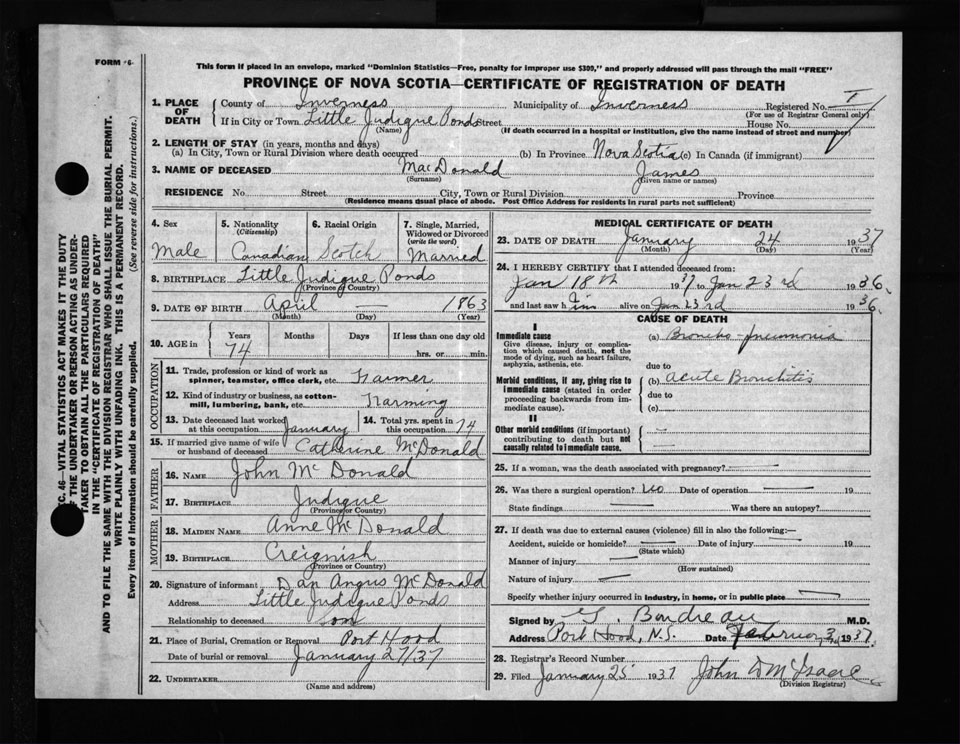 FORM 6
This form if placed in an envelope, marked "Dominion Statistics—Free, penalty for improper use $300," and properly addressed will pass through the mail "FREE"
PROVINCE OF NOVA SCOTIA—CERTIFICATE OF REGISTRATION OF DEATH
1. PLACE OF DEATH County of Inverness Municipality of Inverness Registered No.
(For use of Registrar General only)
If in City or Town Little Judique Ponds Street House No.
(Name) (If death occurred in a hospital or institution, give the name instead of street and number)
2. LENGTH OF STAY (in years, months and days)
(a) In City, Town or Rural Division where death occurred (b) In Province Nova Scotia (c) In Canada (if immigrant)
3. NAME OF DECEASED MacDonald James
(Surname) (Given name or names)
RESIDENCE No. Street City, Town or Rural Division Province
(Residence means usual place of abode. Post Office Address for residents in rural parts not sufficient)
4. Sex 5. Nationality (Citizenship) 6. Racial Origin 7. Single, Married, Widowed or Divorced (write the word)
Male Canadian Scotch Married
8. BIRTHPLACE Little Judique Ponds
(Province or Country)
9. DATE OF BIRTH April — 1863
(Month) (Day) (Year)
10. AGE in Years Months Days If less than one day old
74 hrs. or min.
OCCUPATION
11. Trade, profession or kind of work as spinner, teamster, office clerk, etc. Farmer
12. Kind of industry or business, as cotton-mill, lumbering, bank, etc. Farming
13. Date deceased last worked at this occupation January 14. Total yrs. spent in this occupation 74
15. If married give name of wife or husband of deceased Catherine McDonald
FATHER
16. NAME John McDonald
17. BIRTHPLACE Judique
(Province or Country)
MOTHER
18. MAIDEN NAME Anne McDonald
19. BIRTHPLACE Creignish
(Province or Country)
20. Signature of informant Dan Angus McDonald
Address Little Judique Ponds
Relationship to deceased son
21. Place of Burial, Cremation or Removal Port Hood
Date of burial or removal January 27/37
22. UNDERTAKER
(Name and address)
MEDICAL CERTIFICATE OF DEATH
23. DATE OF DEATH January 24 1937
(Month) (Day)
24. I HEREBY CERTIFY that I attended deceased from:
Jan 18th 1937 to Jan 23rd 1936.
and last saw him alive on Jan 23rd 1936.
CAUSE OF DEATH
I
Immediate cause (a) Broncho-pneumonia
Give disease, injury or complication which caused death, not the mode of dying, such as heart failure, asphyxia, asthenia, etc.
due to
Morbid conditions, if any, giving rise to immediate cause (stated in order proceeding backwards from immediate cause).
(b) Acute Bronchitis
due to
(c)
II
Other morbid conditions (if important) contributing to death but not causally related to immediate cause.
25. If a woman, was the death associated with pregnancy?
26. Was there a surgical operation? No Date of operation — 19
State findings — Was there an autopsy?
27. If death was due to external causes (violence) fill in also the following:—
Accident, suicide or homicide? — Date of injury — 19
(State which)
Manner of injury —
(How sustained)
Nature of injury —
Specify whether injury occurred in industry, in home, or in public place —
Signed by G. Boudreau M.D.
Address Port Hood, N.S. Date February 3rd 1937
28. Registrar's Record Number
29. Filed January 25 1937 John D McIsaac
(Division Registrar)
C. 46—VITAL STATISTICS ACT MAKES IT THE DUTY
OF THE UNDERTAKER OR PERSON ACTING AS UNDER-
TAKER TO OBTAIN ALL THE PARTICULARS REQUIRED
IN THE "CERTIFICATE OF REGISTRATION OF DEATH"
AND TO FILE THE SAME WITH THE DIVISION REGISTRAR WHO SHALL ISSUE THE BURIAL PERMIT.
WRITE PLAINLY WITH UNFADING INK. THIS IS A PERMANENT RECORD.
Every item of Information should be carefully supplied. (See reverse side for instructions.)